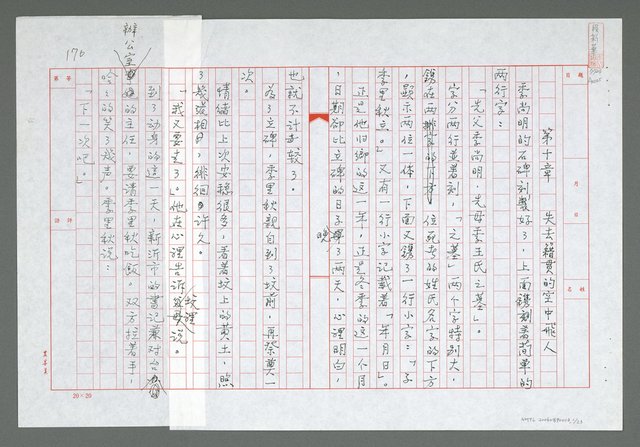 第十章　失去籍貫的空中飛人
李尚明的石碑刻好了，上面鐫刻著簡單的
兩行字：
「先父李尚明，先母李王氏之墓」。
字分兩行並書刻，「之墓」兩个字特別大，
鐫在兩位死者的姓氏名字的下方
，顯示兩位一体，下面又鐫了一行小字：「子
季里秋立。」又有一行小字記載著「年月日」。
正是他归鄉的這一年，正是冬季的這一个月
，日期卻比立碑的日子晚了兩天，心裡明白，
也就不計較了。
為了立碑，季里秋親自到了坟前，再祭奠一
次。
情緒比上次安穩很多，看著坟上的黃土，照
了幾張相，徘徊了許久。
「我又要走了。」他在心裡告訴坟裡說。
到了动身的這一天，新沂市的書记兼对台
辦公室的主任，要请季里秋吃飯，双方拉著手，
哈哈的笑了幾声。季里秋说：
「下一次吧。」
176
第　頁
題目
月
日
姓名
評語
20×20